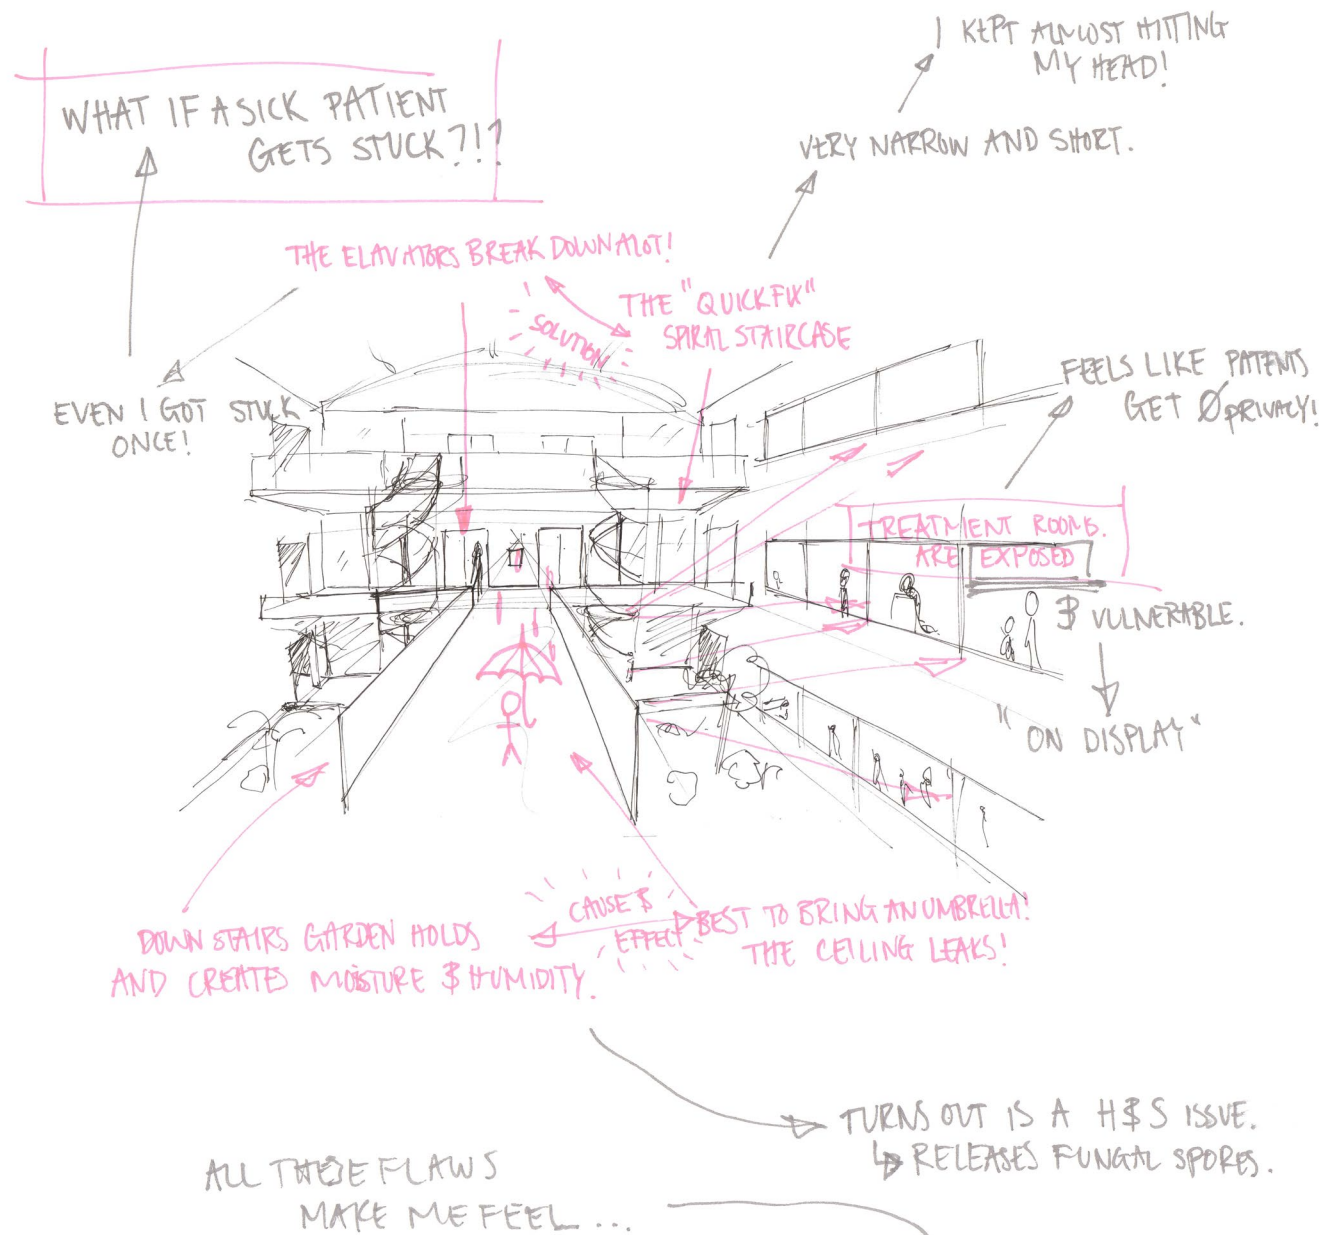 I KEPT ALMOST HITTING
MY HEAD!
WHAT IF A SICK PATIENT
GETS STUCK?!?
VERY NARROW AND SHORT.
THE ELAVATORS BREAK DOWN ALOT!
SOLUTION
THE "QUICK FIX"
SPIRAL STAIRCASE
EVEN I GOT STUCK
ONCE!
FEELS LIKE PATENTS
GET Ø PRIVACY!
TREATMENT ROOMS.
ARE EXPOSED
& VULNERABLE.
"ON DISPLAY"
DOWN STAIRS GARDEN HOLDS
AND CREATES MOISTURE & HUMIDITY.
CAUSE &
EFFECT
BEST TO BRING AN UMBRELLA!
THE CEILING LEAKS!
TURNS OUT IS A H&S ISSUE.
↳ RELEASES FUNGAL SPORES.
ALL THESE FLAWS
MAKE ME FEEL ...